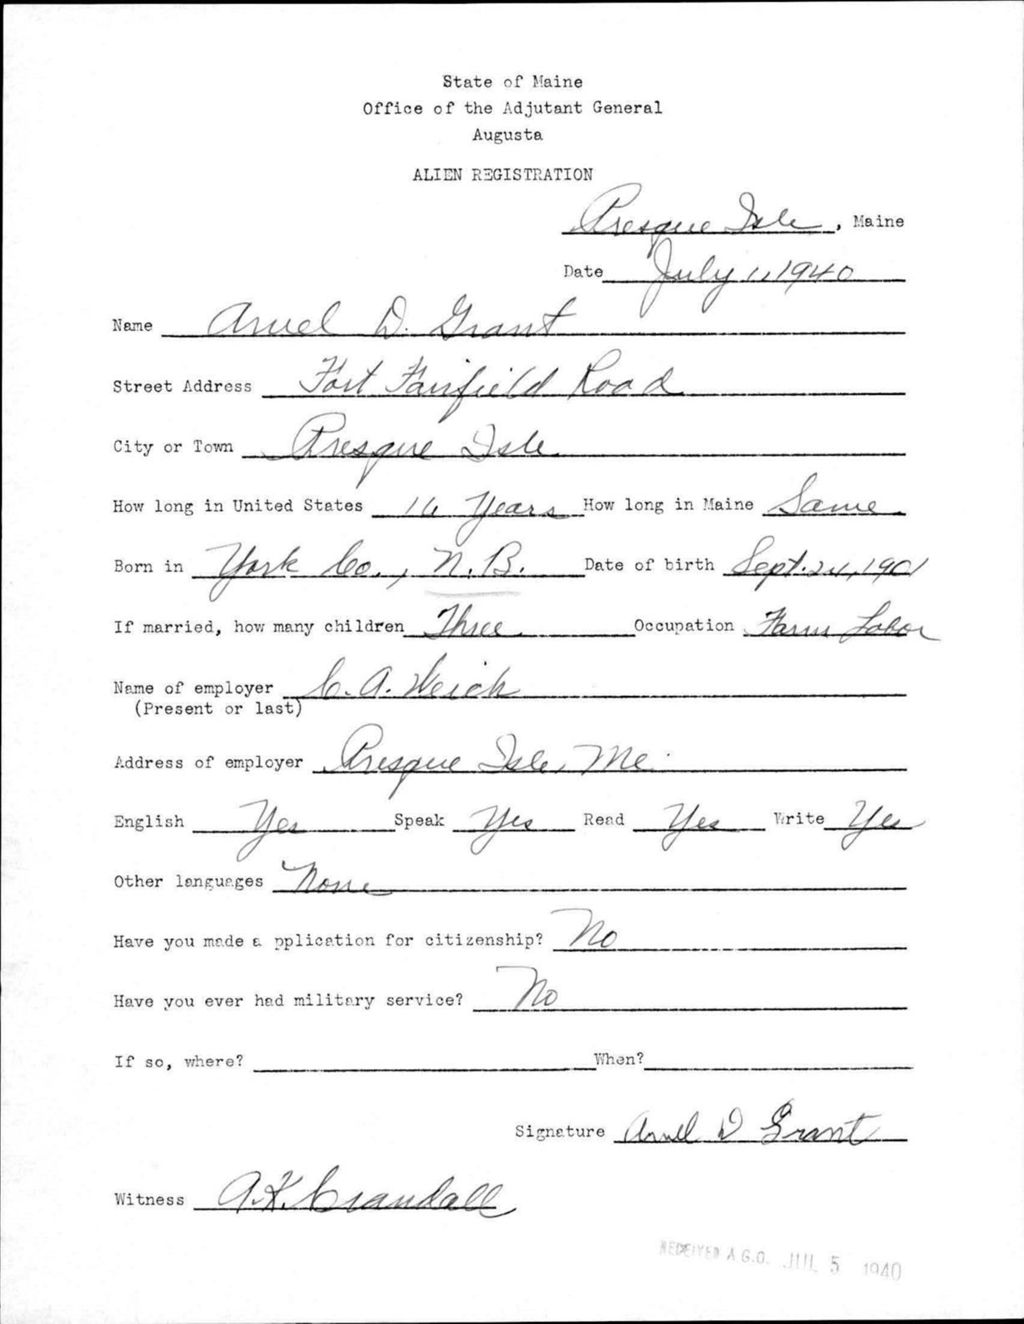 State of Maine
Office of the Adjutant General
Augusta
ALIEN REGISTRATION
Presque Isle, Maine
Date July 1, 1940
Name Arvel D. Grant
Street Address Fort Fairfield Road
City or Town Presque Isle
How long in United States 16 Years How long in Maine Same
Born in York Co., N.B. Date of birth Sept. 24, 1901
If married, how many children Three Occupation Farm Labor
Name of employer C. A. Weick
(Present or last)
Address of employer Presque Isle, Me.
English Yes Speak Yes Read Yes Write Yes
Other languages None
Have you made a pplication for citizenship? No
Have you ever had military service? No
If so, where? When?
Signature Arvel D Grant
Witness A.K. Crandall
RECEIVED A.G.O. JUL 5 1940